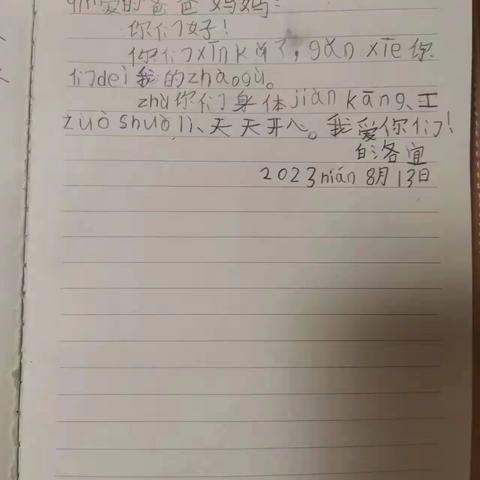 爱的爸爸妈妈:
你们好!
你们xīnkǔ了,gǎn xiè你
们dei我的zhaogù。
zhù你们身体jiànkāng、工
zuò shùn lì、天天开心。我爱你们!
白洛宜
2023nián 8月13日